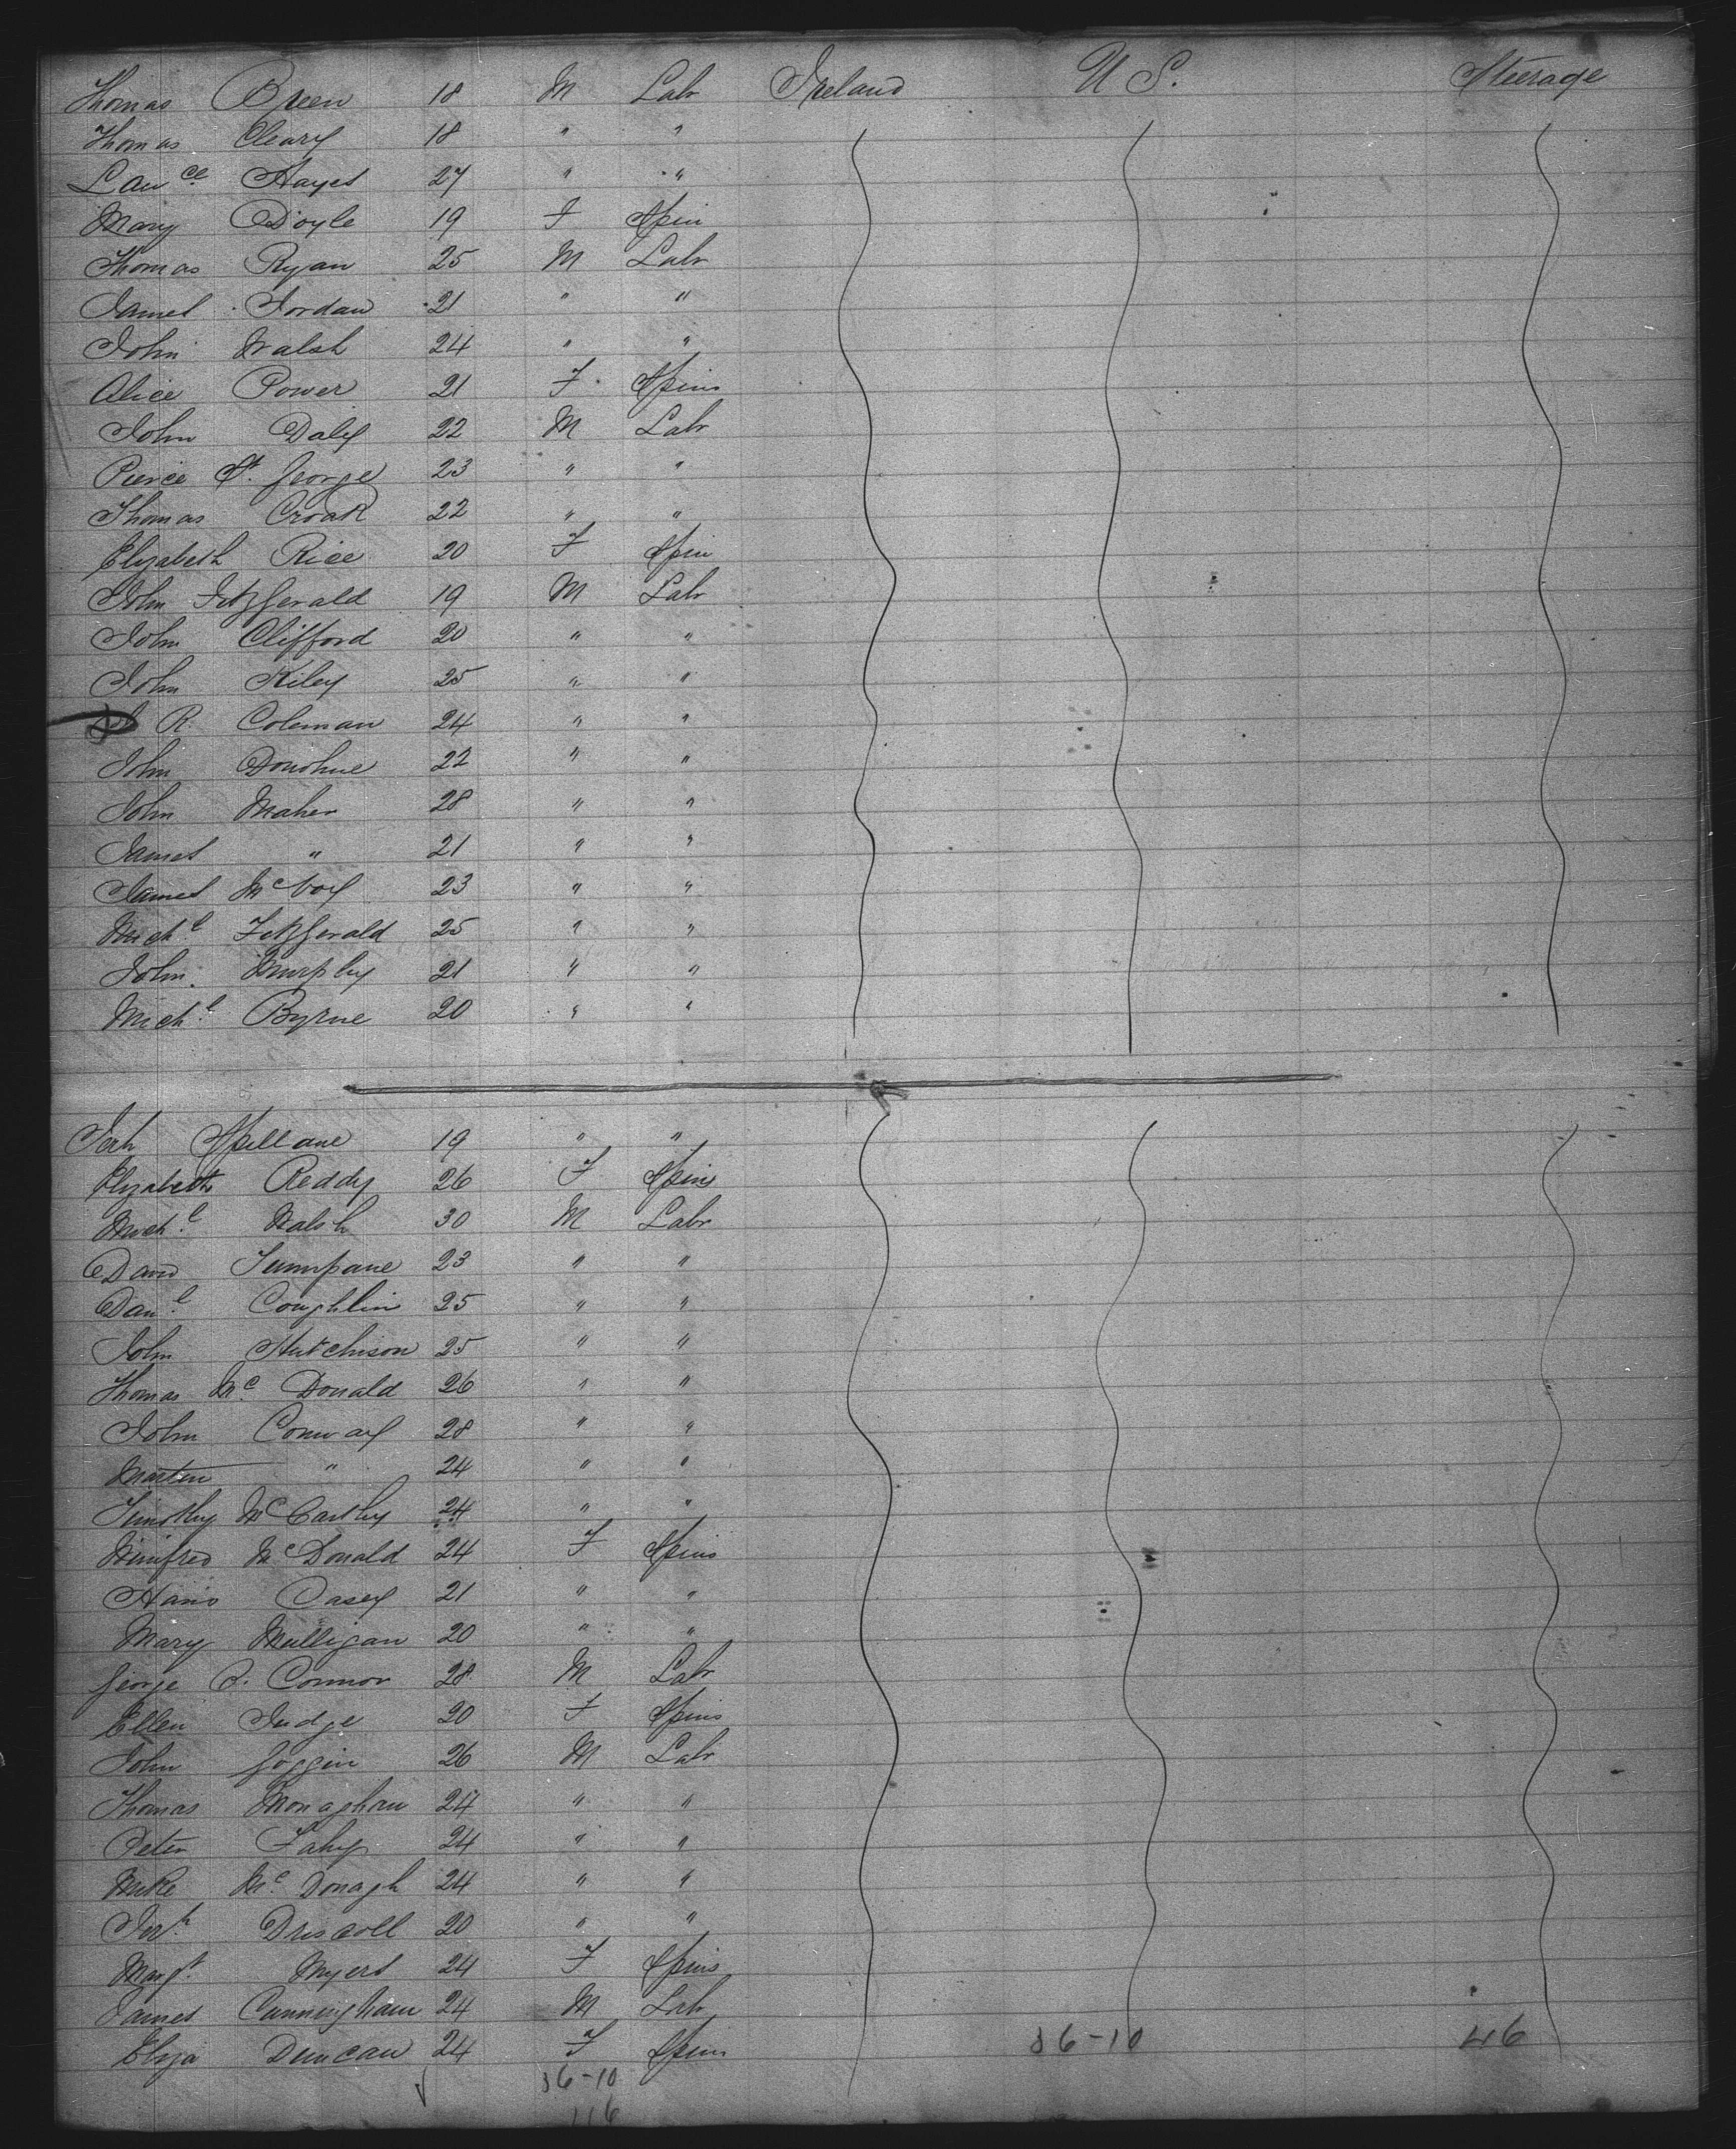 Thomas Breen 18 M Labr Ireland U S. Steerage
Thomas Cleary 18 " "
Lawce Hayes 27 " "
Mary Doyle 19 F Spin
Thomas Ryan 25 M Labr
James Jordan 21 " "
John Walsh 24 " "
Alice Power 21 F Spins
John Daly 22 M Labr
Pierce St. George 23 " "
Thomas Croak 22 " "
Elizabeth Rice 20 F Spin
John Fitzgerald 19 M Labr
John Clifford 20 " "
John Kiley 25 " "
R. Coleman 24 " "
John Donohue 22 " "
John Maher 28 " "
James " 21 " "
James McVoy 23 " "
Michl Fitzgerald 25 " "
John Murphy 21 " "
Michl Byrne 20 " "
Jerh Spillane 19 " "
Elizabeth Reddy 26 F Spins
Michl Walsh 30 M Labr
David Tumpane 23 " "
Danl Coughlin 25 " "
John Hutchison 25 " "
Thomas Mc Donald 26 " "
John Conway 28 " "
Martin " 24 " "
Timothy McCarthy 24 " "
Winifred McDonald 24 F Spins
Casey 21 " "
Mary Mulligan 20 " "
George Connor 28 M Labr
Ellen Judge 20 F Spins
John Goggin 26 M Labr
Thomas Monaghan 24 " "
Peter Fahy 24 " "
Mike Mc Donagh 24 " "
Jerh Driscoll 20 " "
Margt. Myers 24 F Spins
James Cunningham 24 M Labr
Eliza Duncan 24 F Spin 36-10 46
36-10